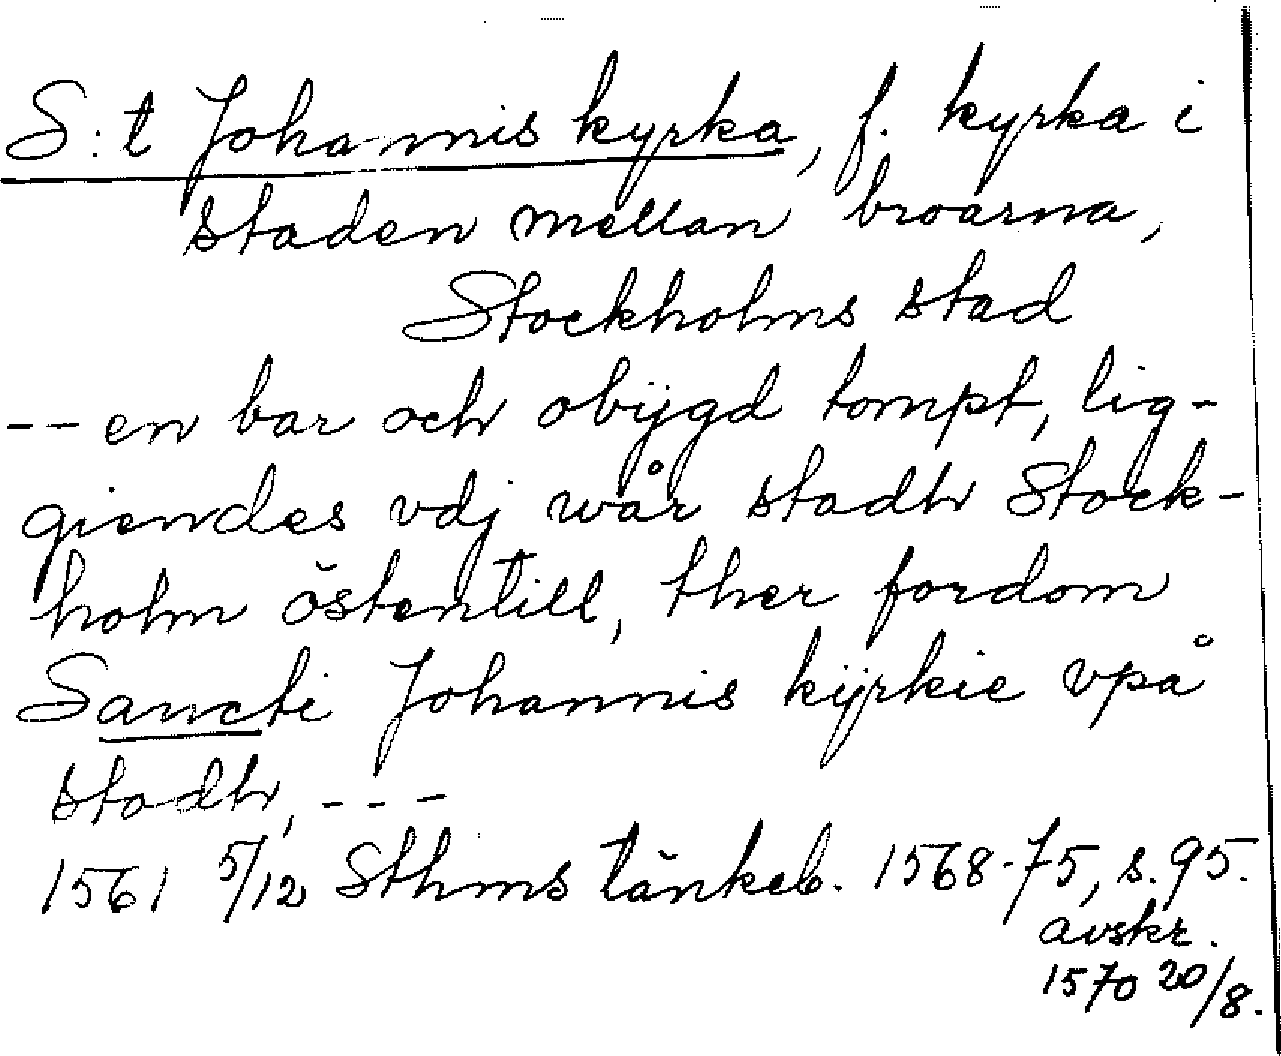 S:t Johannis kyrka, f. kyrka i
staden mellan broarna,
Stockholms stad
-- en bar och obÿgd tompt, lig-
giendes vdj wår stadh Stock-
holm östentill, ther fordom
Sancti Johannis kÿrkie vpå
stodh, ---
1561 5/12 Sthms tänkeb. 1568-75, s. 95.
avskr.
1570 20/8.